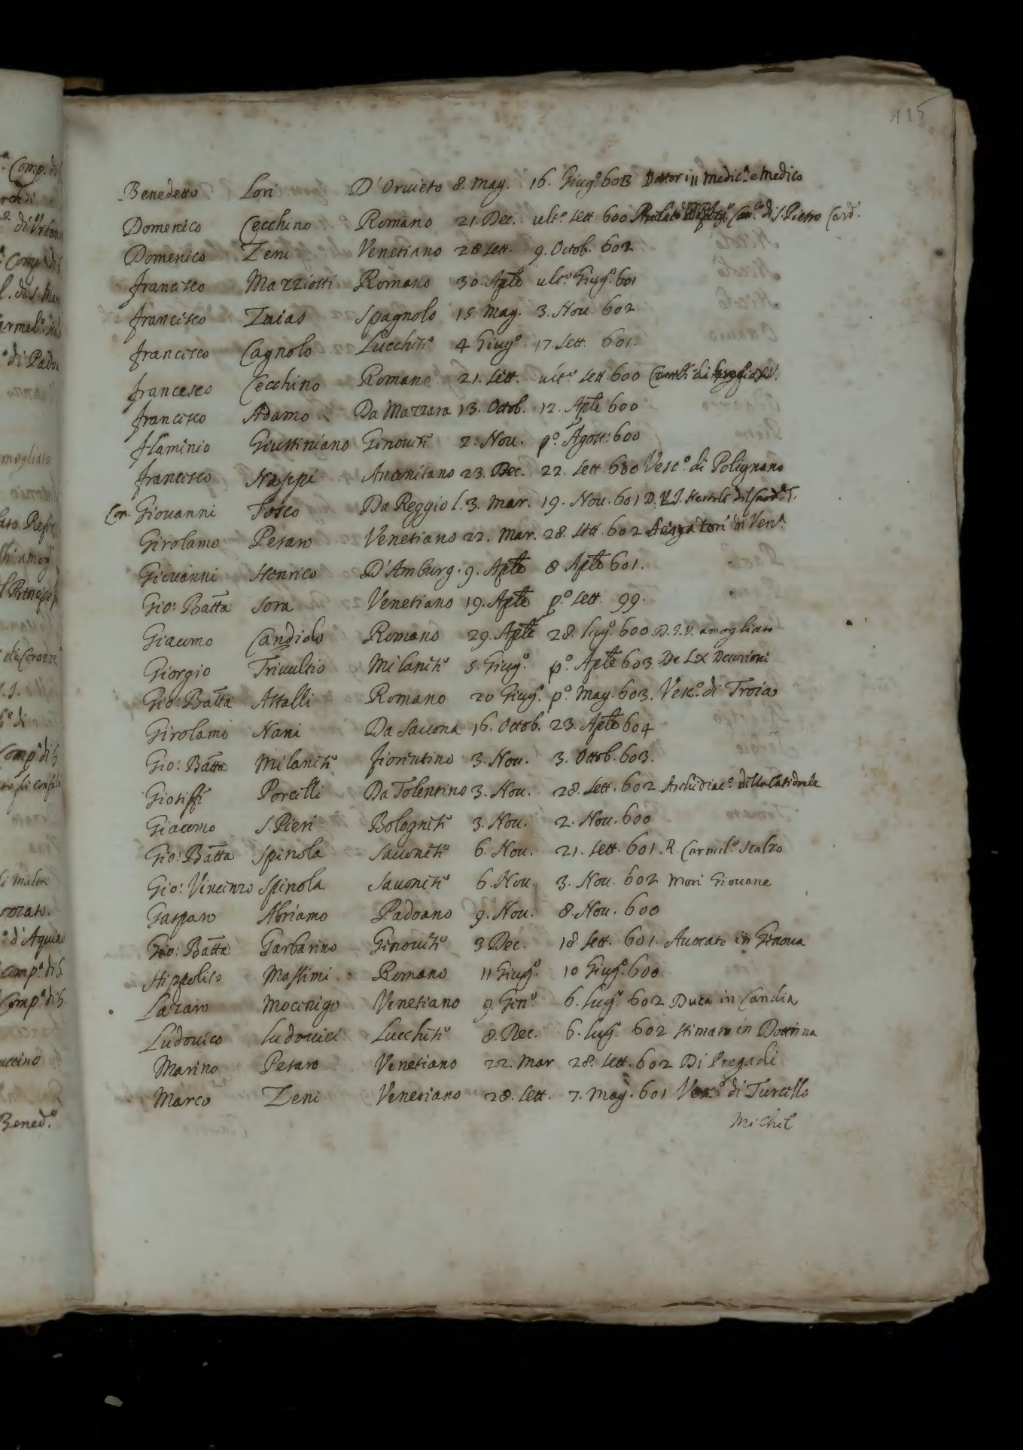 115
Benedetto Lori D'Orvieto 8. Mag. 16. Giug.º 603 Dottor in Medic.ª e Medico
Domenico Cecchino Romano 21. Dec. ult.º Sett. 600 di S. Pietro Card.
Domenico Zeni Venetiano 28 Sett. 9. Octob. 602
francesco Mazziotti Romano 30. Aple ult.º Giug.º 601
francesco Zaias Spagnolo 15 Mag. 3. Nov. 602
francesco Cagnolo Lucchese 4 Giug.º 17. Sett. 601
francesco Cecchino Romano 21. Sett. ult.º Sett 600
francesco Adamo Da Mazzara 13. Ottob. 12. Aple 600
flaminio Giustiniano Genovese 2. Nov. pº. Agost. 600
francesco Nappi Anconitano 23. Dec. 22. Sett 600 Vesc.º di Polignano
Con. Giovanni Fosco Da Reggio L. 3. Mar. 19. Nov. 601 D. V. J.
Girolamo Pesaro Venetiano 22. Mar. 28. Sett 602 in Ven.ª
Giovanni Henrico D'Amburg. 9. Aple 8 Aple 601.
Gio: Batta Sora Venetiano 19. Aple pº Sett 99.
Giacomo Candiolo Romano 29. Aple 28. Lug.º 600 D. J. V. amogliato
Giorgio Trivultio Milanese 5. Giug.º pº. Aple 603 De LX Decurioni
Gio: Batta Attalli Romano 20 Giug.º pº. Mag. 603. Vesc.º di Troia
Girolamo Nani Da Savona 16. Ottob. 23. Aple 604
Gio: Batta Milanese fiorentino 3. Nov. 3. Ottob. 603.
Gioseffe Porcelli Da Tolentino 3. Nov. 28. Sett. 602 Archidiac.º della Catedrale
Giacomo S. Pieri Bolognese 3. Nov. 2. Nov. 600
Gio: Batta Spinola Savonese 6. Nov. 21. Sett. 601. Carmel.º Scalzo
Gio: Vincenzo Spinola Savonese 6 Nov. 3. Nov. 602 Morì Giovane
Gasparo Abriamo Padoano 9. Nov. 8. Nov. 600
Gio: Batta Garbarino Genovese 3 Dec. 18 Sett. 601. Avocato in Genova
Hippolito Massimi Romano 11 Giug.º 10 Giug.º 600
Lazaro Mocenigo Venetiano 9. Gen.º 6. Lug.º 602 Duca in Candia
Ludovico Ludovici Lucchese 8. Dec. 6. Lug.º 602 stimato in Dottrina
Marino Pesaro Venetiano 22. Mar 28. Sett. 602 Di Pregadi
Marco Zeni Venetiano 28. Sett. 7. Mag. 601 Vesc.º di Turcello
Michel